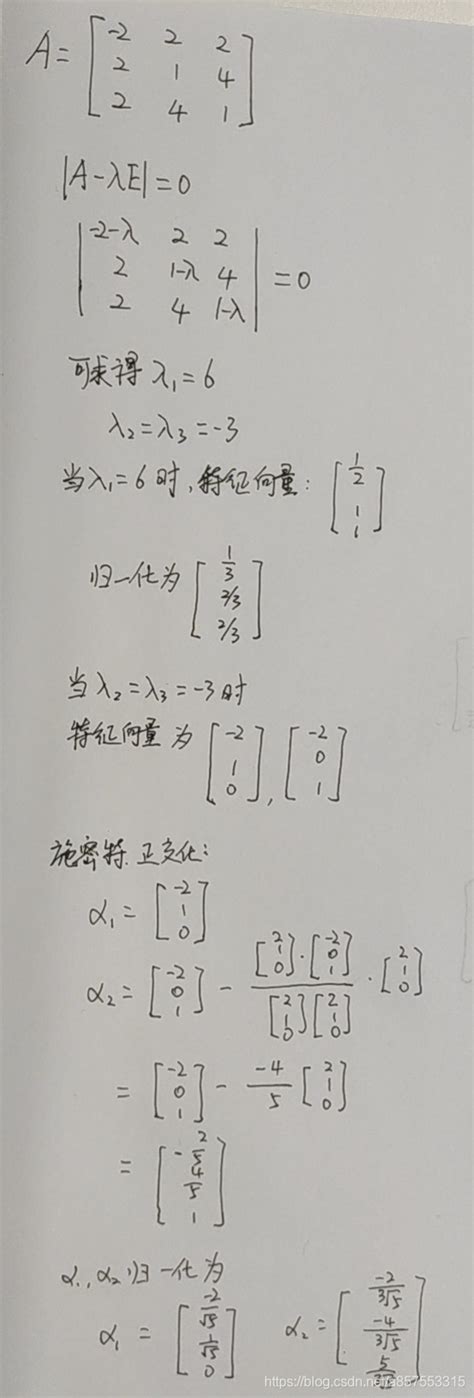 A = [-2 2 2
2 1 4
2 4 1]
|A-λE|=0
|-2-λ 2 2
2 1-λ 4
2 4 1-λ| = 0
可求得 λ₁=6
λ₂=λ₃=-3
当λ₁=6时,特征向量: [1/2 1 1]
归一化为 [1/3 2/3 2/3]
当λ₂=λ₃=-3时
特征向量为 [-2 1 0], [-2 0 1]
施密特正交化:
α₁ = [-2 1 0]
α₂ = [-2 0 1] - [2 1 0]·[-2 0 1] / [2 1 0][2 1 0] · [2 1 0]
= [-2 0 1] - -4/5 [2 1 0]
= [-2/5 4/5 1]
α₁,α₂归一化为
α₁ = [-2/√5 1/√5 0] α₂ = [-2/3√5 -4/3√5